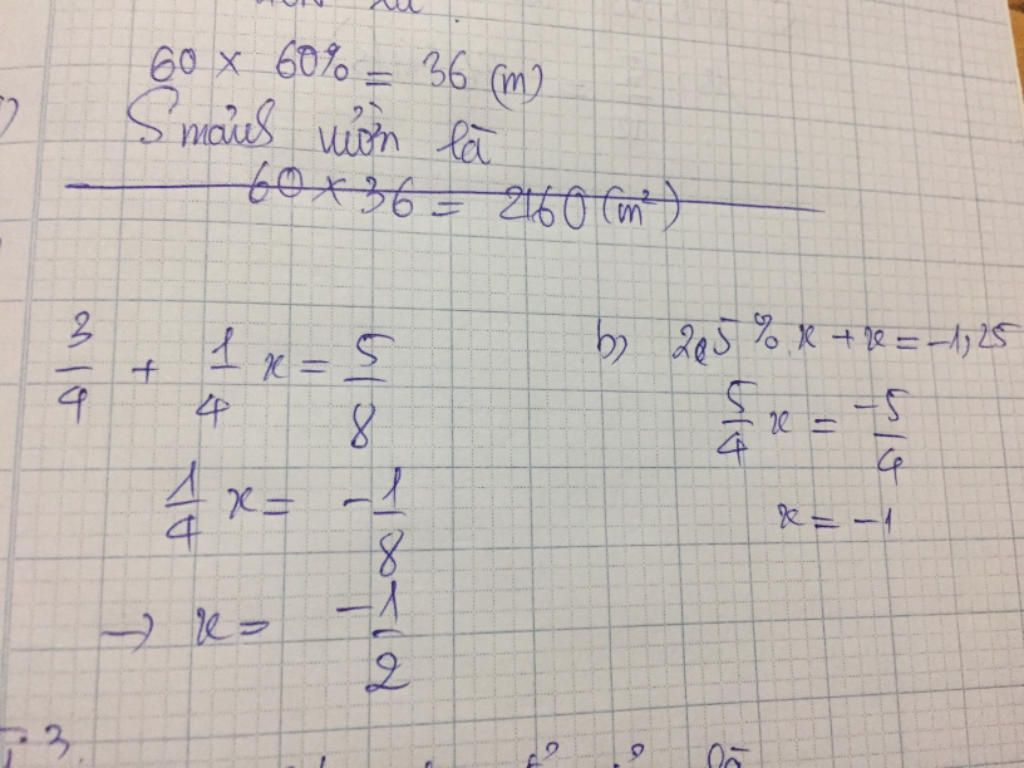 60 x 60% = 36 (m)
S mảnh vườn là
60 x 36 = 2160 (m²)
3/4 + 1/4 x = 5/8
1/4 x = -1/8
→ x = -1/2
b) 25%.x + x = -1,25
5/4 x = -5/4
x = -1
3.